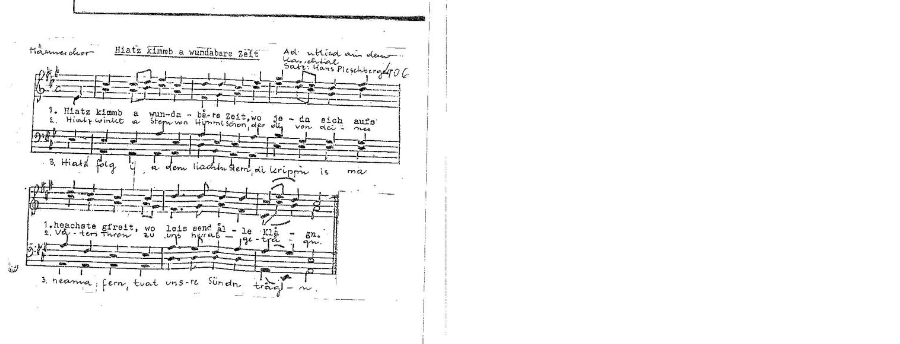 Männerchor Hiatz kimmb a wundabare Zeit
Satz: Hans Pleschberger 406
1. Hiatz kimmb a wun-da - bå-re Zeit, wo je - da sich aufs
2. Hiatz winkt a Stern von von dei - nes
3, Hiatz folg i, a dem liachtn Stern, di Krippn is ma
1. heachste gfreit, wo leis send ål - le Klå - gn.
2. Vå - ters Thron zu uns herab - ge-trå - gn.
3. neama, fern, tuat uns-re Sündn trågl - n.